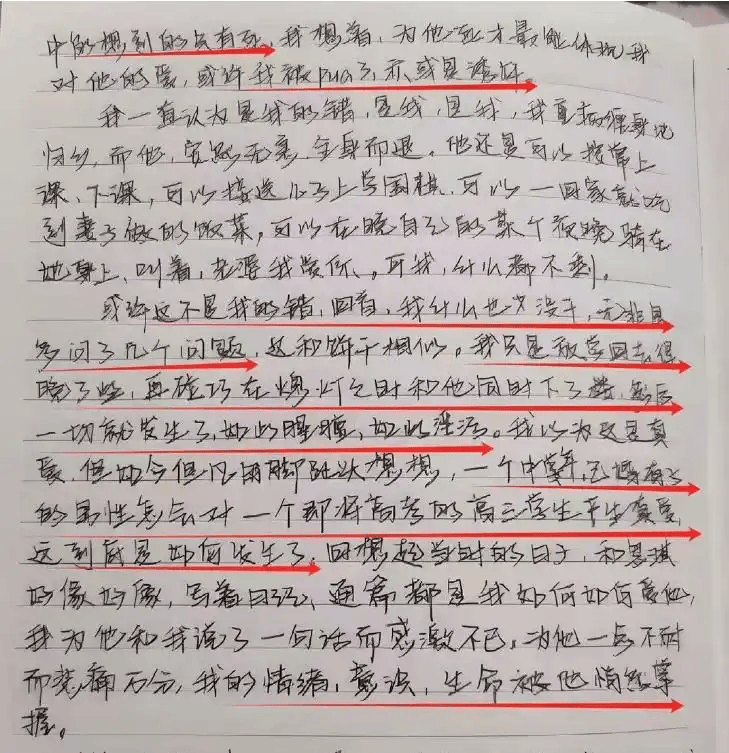 中的想到的只有死，我想着，为他死才最能体现我
对他的爱，或许我被pua了，亦或是透体。
我一直认为是我的错，是我，是我，我重
归乡，而他，安然无恙，全身而退。他还是可以接常上
课、下课，可以接送儿子上学围棋，可以一回家就吃
到妻子做的饭菜，可以在晚自习的某个夜晚骑在
她身上，叫着，老婆我爱你，可我，什么都不剩。
或许这不是我的错，回首，我什么也没干，无非是
多问了几个问题，这和饼干相似。我只是放学回去得
晚了些，再碰巧在熄灯之时和他同时下了楼，然后
一切就发生了，如此朦胧，如此。我以为这是真
爱，但如今但凡用脚趾头想想，一个中年，已婚有子
的男性怎会对一个即将高考的高三学生产生真爱，
这到底是如何发生了，回想起当时的日子，和思琪
好像好像，写着日记，通篇都是我如何如何爱他，
我为他和我说了一句话而感激不已，为他一点不耐
而悲痛万分，我的情绪，意识，生命被他悄然掌
握。